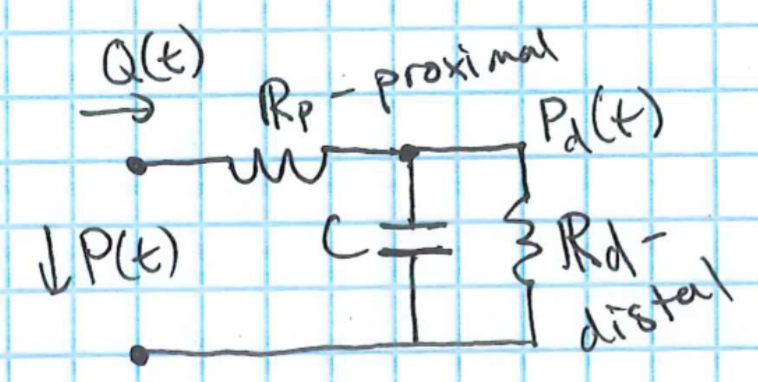 Q(t)
Rp - proximal
Pd(t)
↓P(t)
C
Rd -
distal